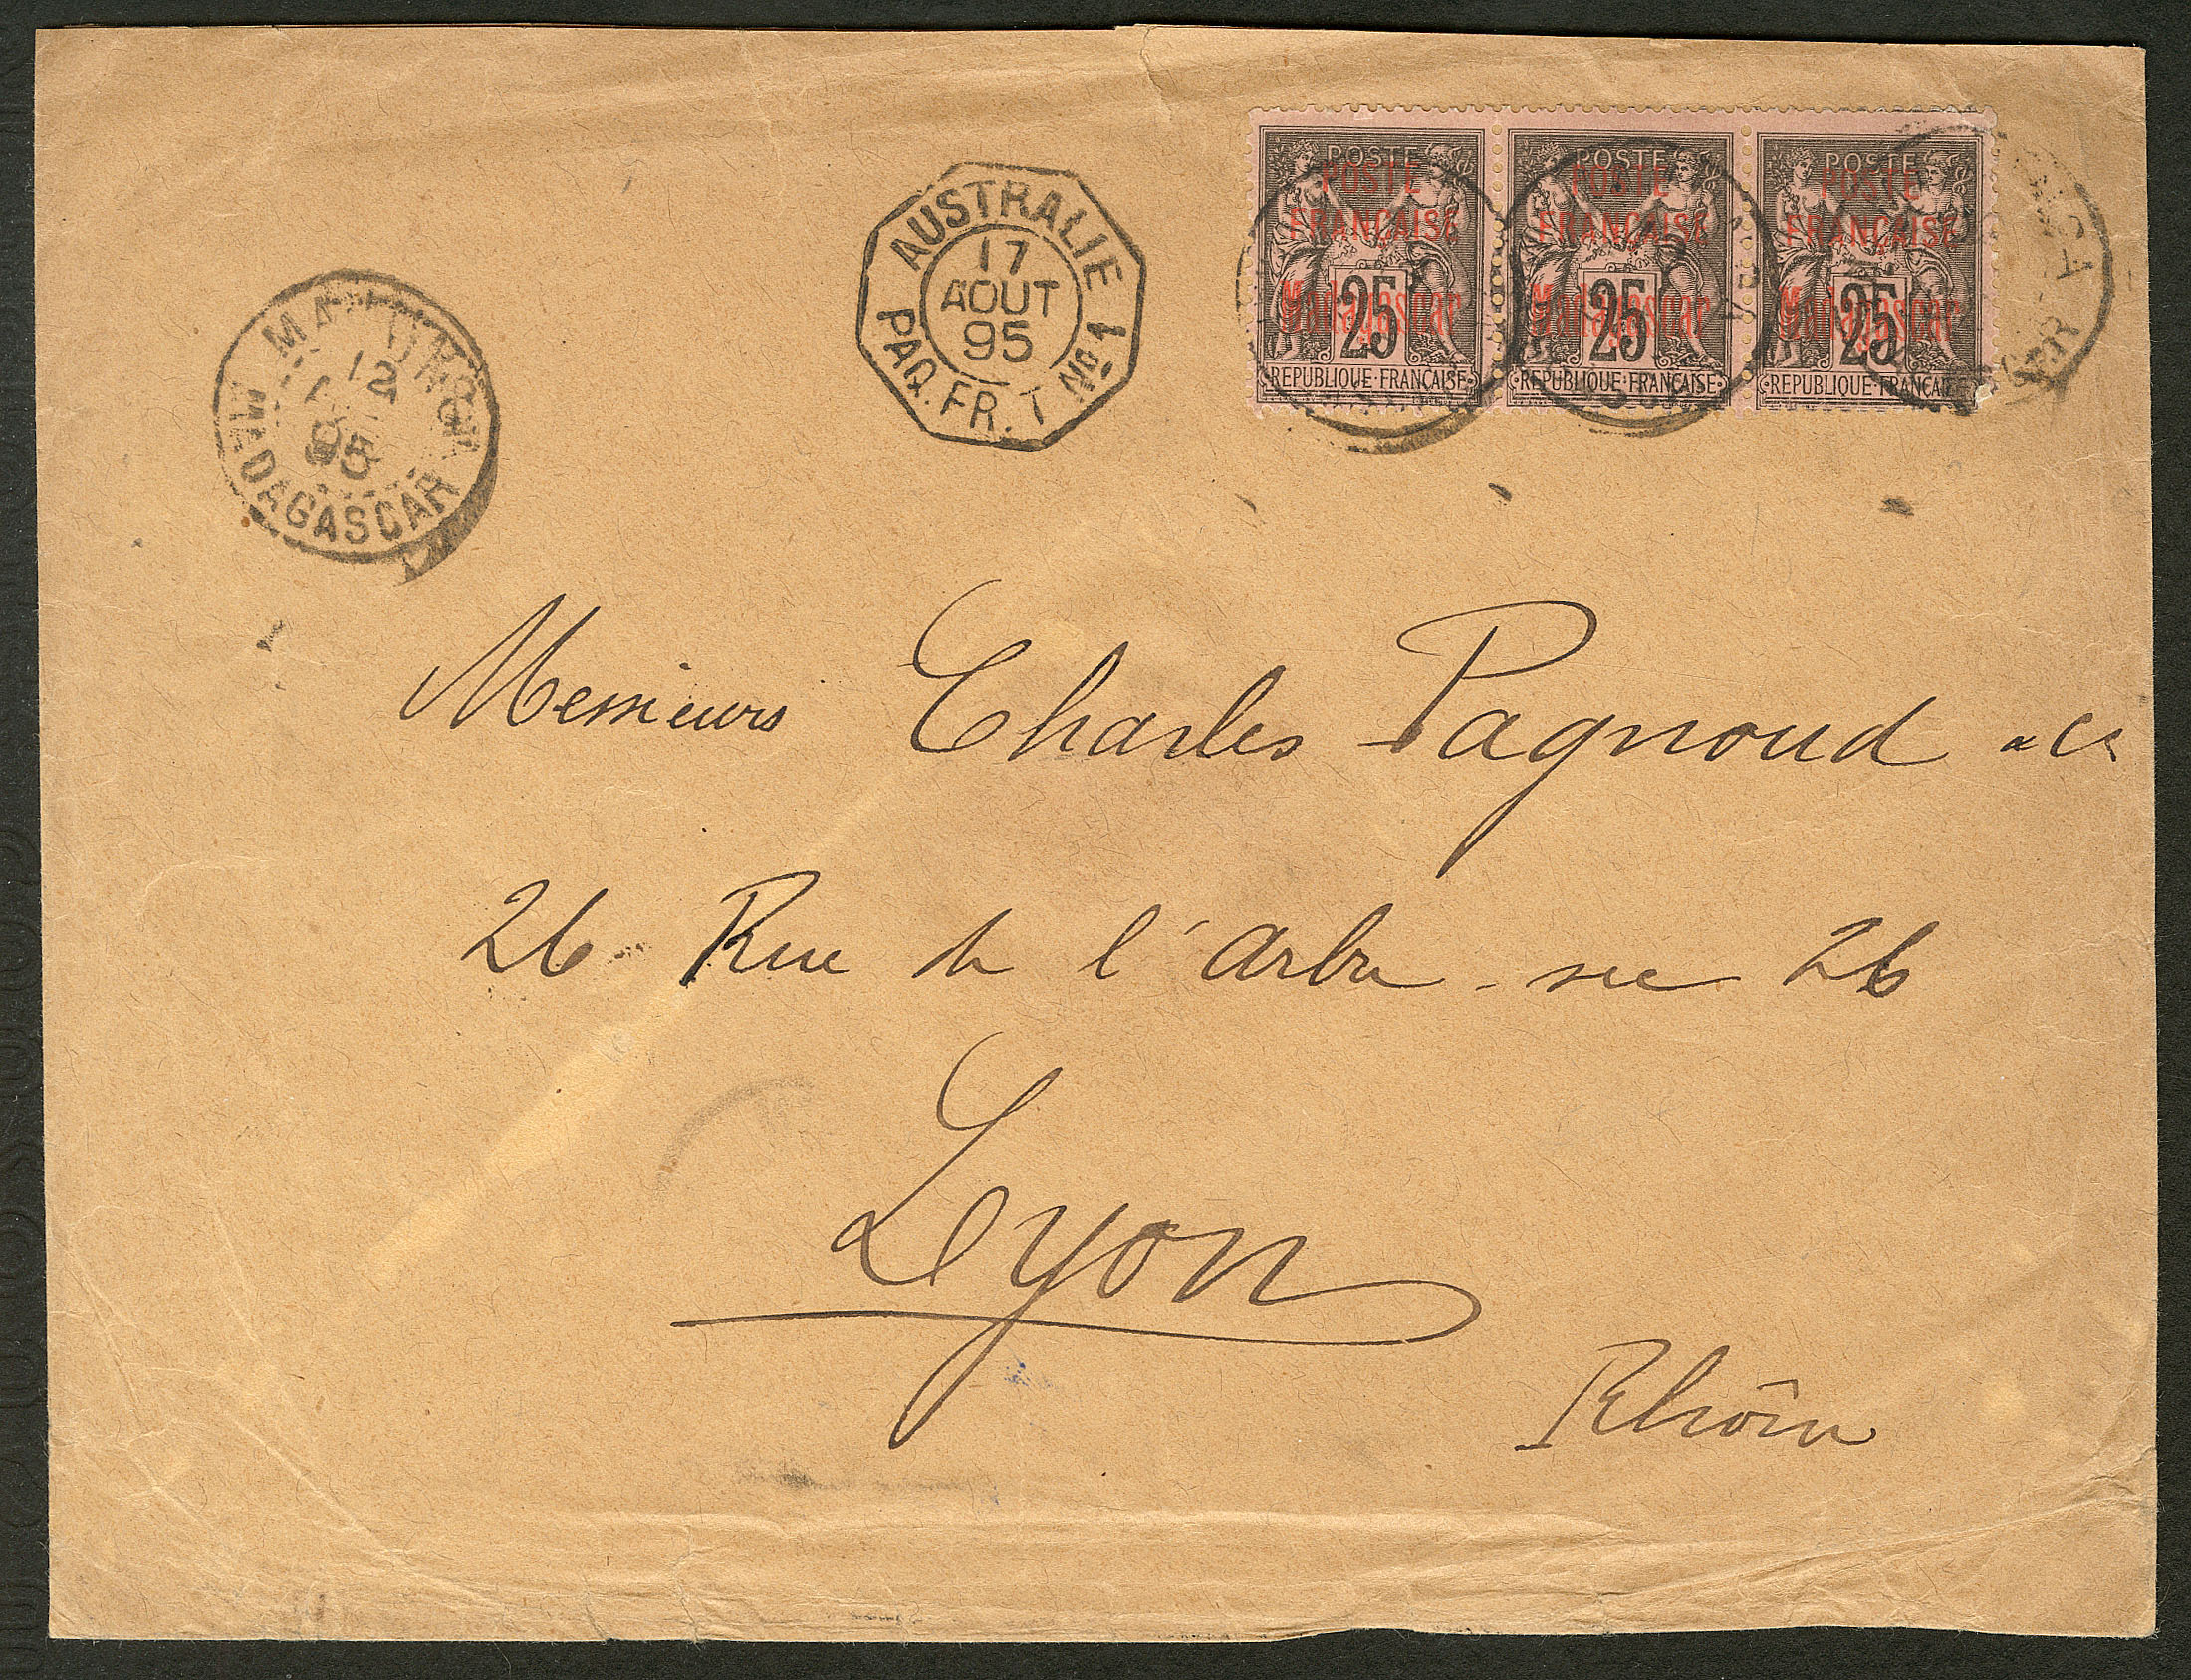 AUSTRALIE
17
AOUT
95
PAQ. FR. T Nº 1
MAJUNGA
12
95
MADAGASCAR
POSTE
POSTE
FRANÇAISE
Madagascar
25
REPUBLIQUE FRANÇAISE
POSTE
POSTE
FRANÇAISE
Madagascar
25
REPUBLIQUE FRANÇAISE
POSTE
POSTE
FRANÇAISE
Madagascar
25
REPUBLIQUE FRANÇAISE
Messieurs Charles Pagnoud & Cie
26 Rue de l'arbre sec 26
Lyon
Rhône